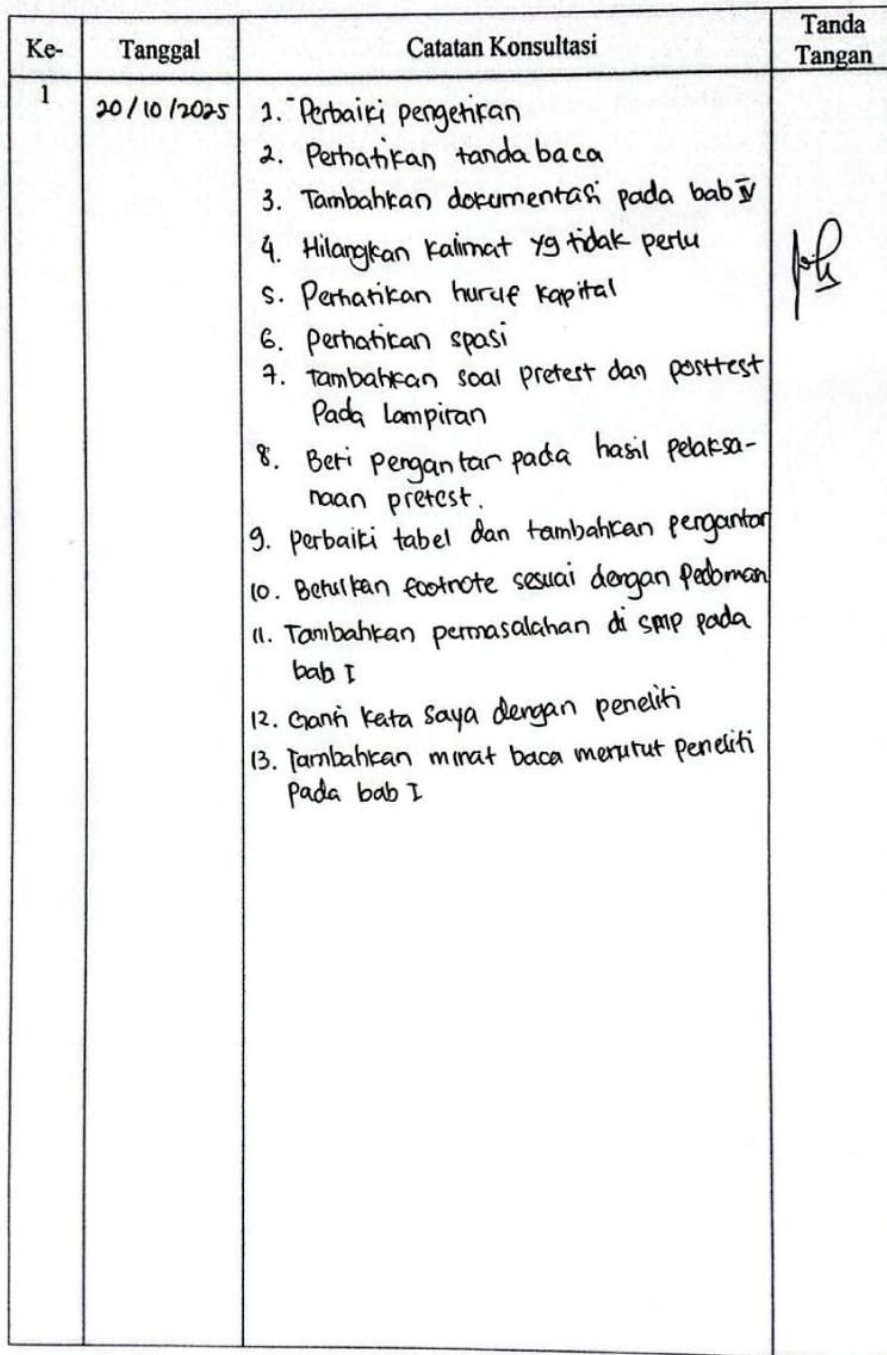 Ke- Tanggal Catatan Konsultasi Tanda Tangan
1 20/10/2025 1. Perbaiki pengetikan
2. Perhatikan tanda baca
3. Tambahkan dokumentasi pada bab IV
4. Hilangkan kalimat yg tidak perlu
5. Perhatikan huruf kapital
6. perhatikan spasi
7. Tambahkan soal pretest dan posttest
Pada Lampiran
8. Beri pengantar pada hasil pelaksa-
naan pretest.
9. perbaiki tabel dan tambahkan pengantar
10. Betulkan footnote sesuai dengan Pedoman
11. Tambahkan permasalahan di SMP pada
bab I
12. Ganti kata saya dengan peneliti
13. Tambahkan minat baca merutut peneliti
Pada bab I